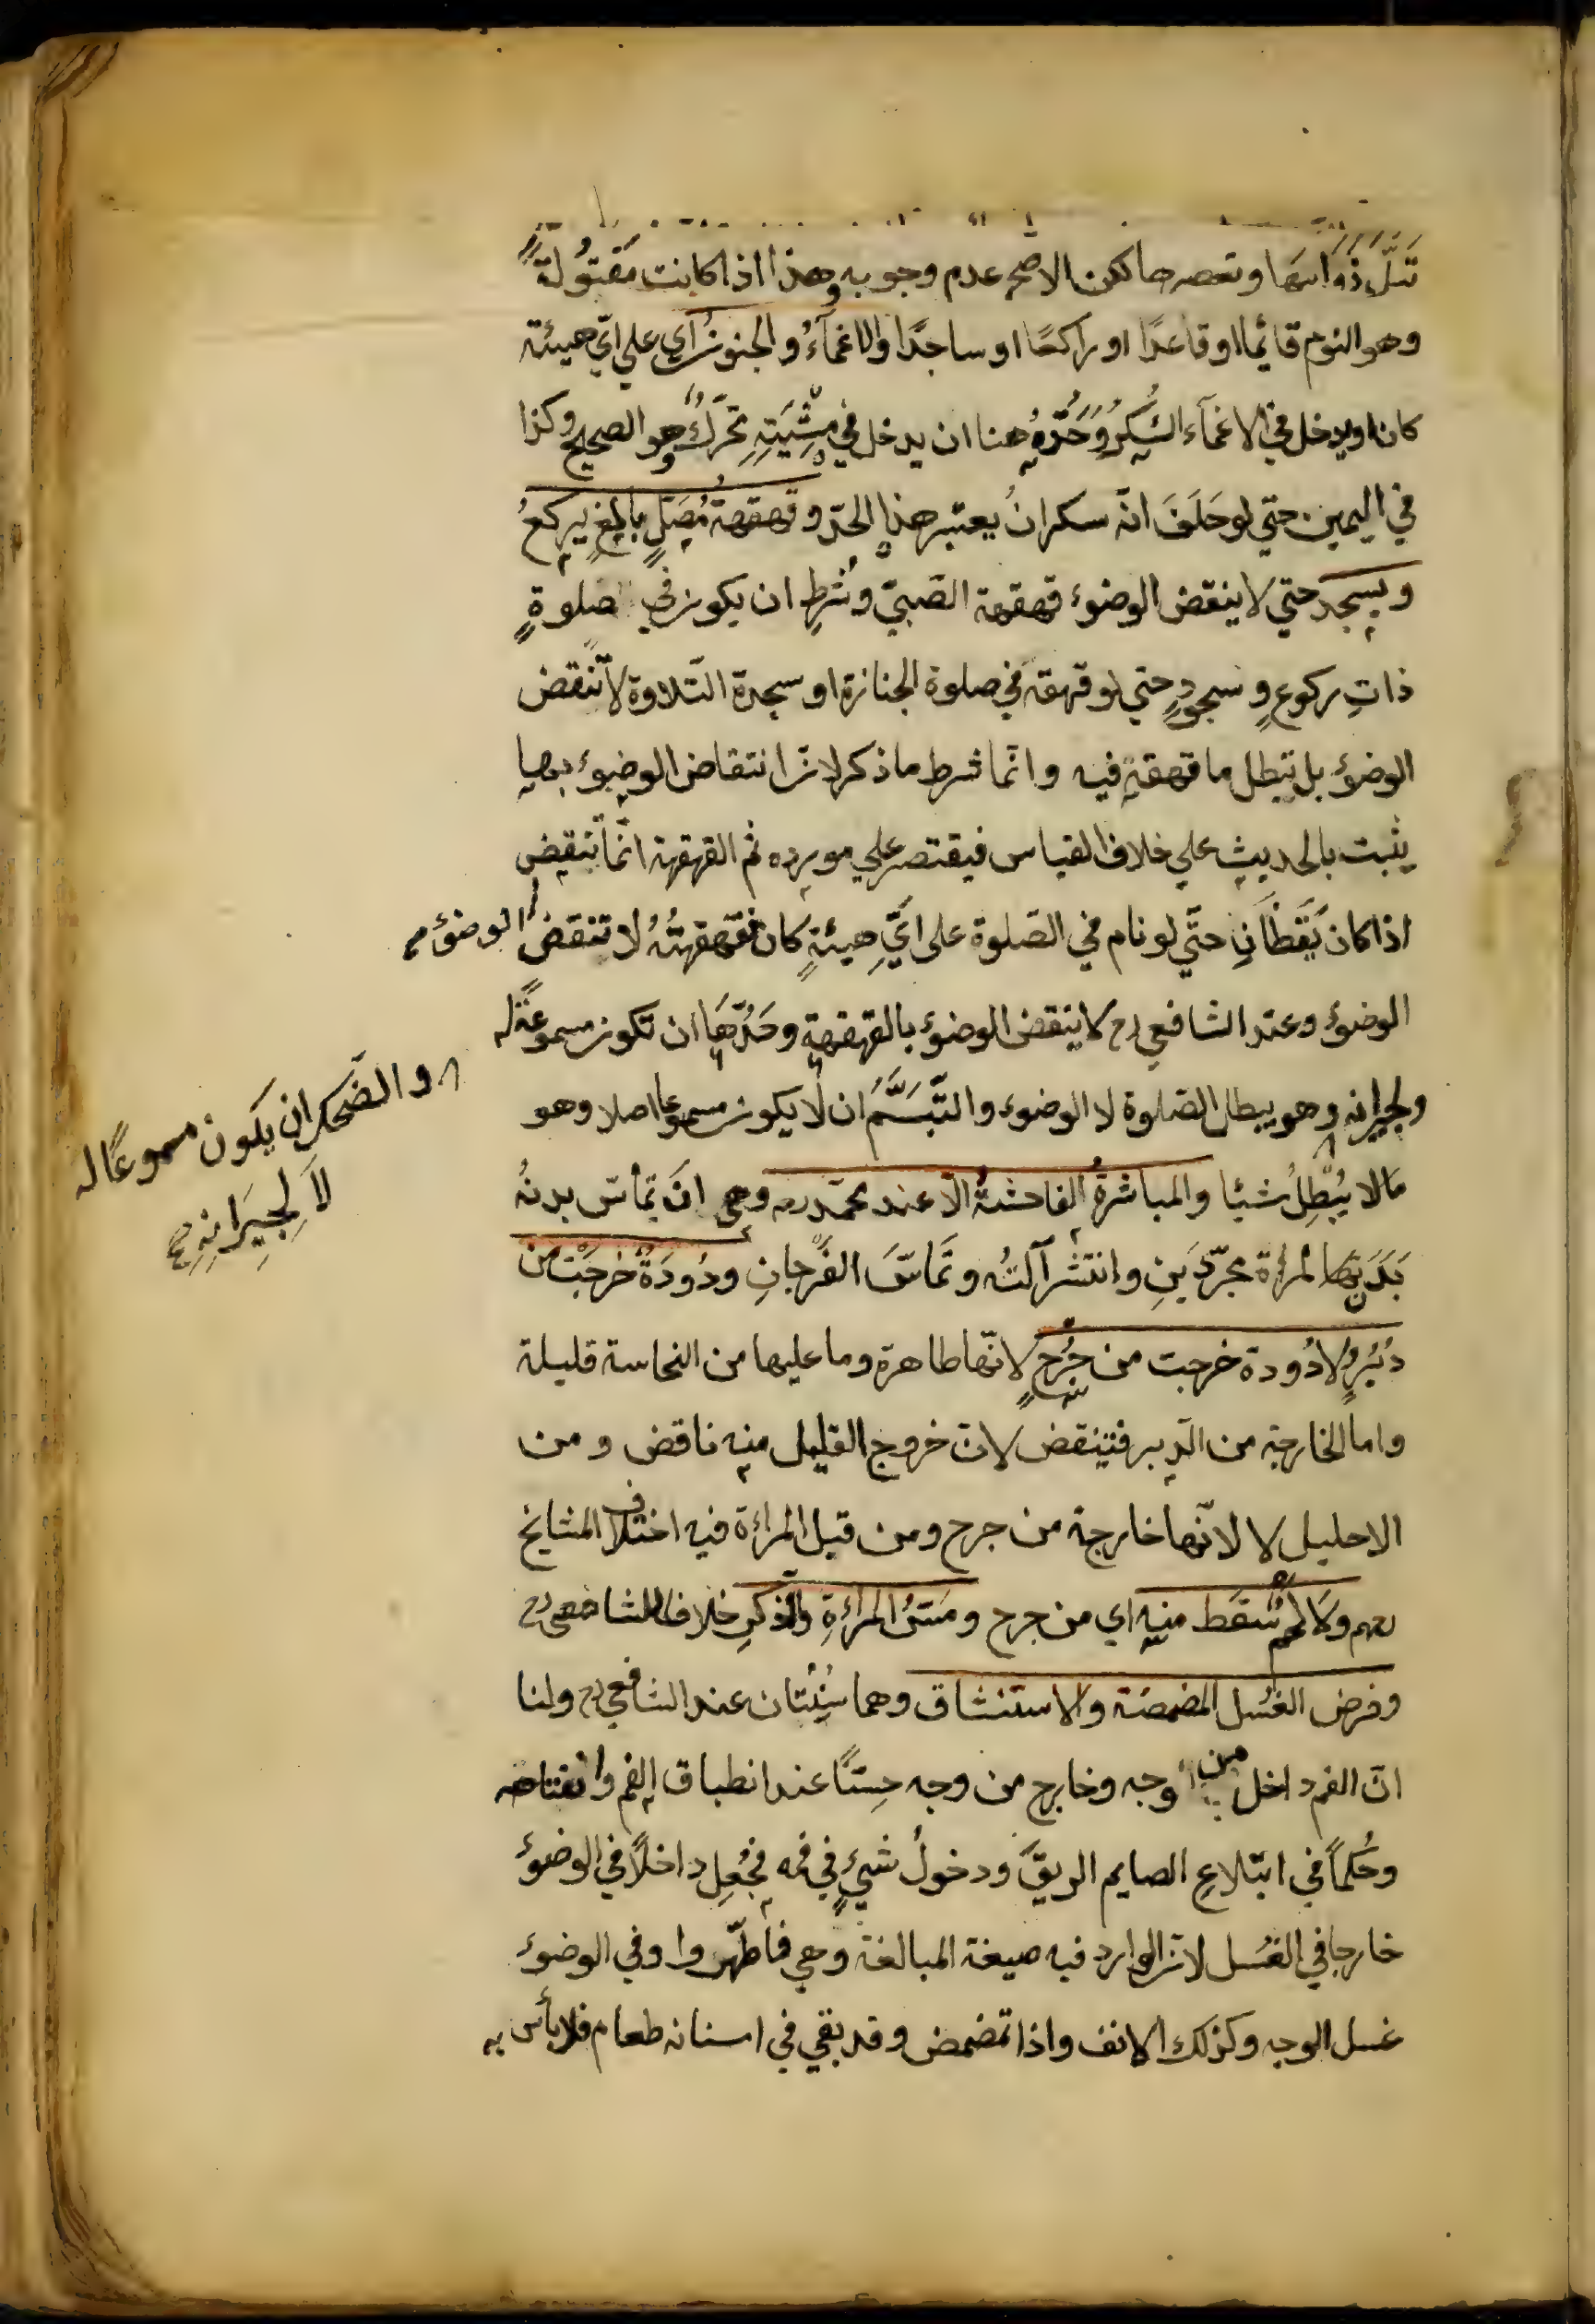 تبلّ ذوائبها وتعصرها لكن الاصح عدم وجوبه وهذا اذا كانت مفتولة
وهو النوم قائما او قاعدًا او راكعًا او ساجدًا والاغمآءُ والجنونُ اي علي ايّ هيئة
كانا ويدخل في الاغمآء السُّكرُ وَحَدُّهُ هنا ان يدخل في مِشْيَتِهِ تحرّكٌ وهو الصحيح وكذا
في اليمين حتي لو حَلَفَ انّه سكرانُ يعتبر هذا الحدّ وقهقهةُ مُصَلٍّ بالغٍ يركعُ
ويسجد حتي لا ينقض الوضوء قهقهة الصّبيّ وشُرِط ان يكون في صلوةٍ
ذاتِ ركوعٍ وسجودٍ حتي لو قهقه في صلوة الجنازة او سجدة التّلاوة لا تنقض
الوضوءَ بل تبطل ما قهقه فيه وانّما شرط ما ذكر لانّ انتقاض الوضوء بها
يثبت بالحديث علي خلاف القياس فيقتصر علي مورده ثم القهقهة انّما تنقض
اذا كان يَقْظَانَ حتّي لو نام في الصّلوة على ايِّ هيئةٍ كان فقهقهتُهُ لا تنقضُ الوضوءَ
الوضوءَ وعند الشافعي رح لا ينقض الوضوءَ بالقهقهةِ وحَدُّهَا ان تكون مسموعةً له
ولجيرانه وهو يبطل الصّلوة لا الوضوء والتّبَسُّمُ ان لا يكون مسموعا اصلا وهو
مَا لا يُبْطِلُ شيئا والمباشرةُ الفاحشةُ الّا عند محمّد رحه وهي ان يَمَاسّ بدنهُ
بَدَنَ المرأة مجرّدَينِ وانتشر آلتُه وتَمَاسَّ الفَرْجانِ ودُودَةٌ خرجَتْ من
دُبُرٍ ولا دُودة خرجت من جُرحٍ لانّها طاهرة وما عليها من النجاسة قليلة
واما الخارجة من الدّبر فتنقض لانّ خروج القليل منه ناقض ومن
الاحليل لا لانّها خارجة من جرح ومن قبل المراءة فيه اختلاف المشايخ
رحهم ولا لحم سَقَط منه اي من جرح ومَسّ المراءةِ والذّكرِ خلافا للشافعي رح
وفرض الغُسل المضمضة والاستنشاق وهما سُنّتان عند الشافعي رح ولنا
انّ الفم داخل من وجه وخارج من وجه حِسّاً عند انطباق الفم وانفتاحه
وحُكماً في ابتلاعِ الصايم الريقَ ودخولُ شيءٍ في فمه فجُعِل داخلاً في الوضوءِ
خارجا في الغُسل لانّ الوارد فيه صيغة المبالغة وهي فاطّهّروا وفي الوضوء
غسل الوجه وكذلك الانف واذا تمضمض وقد بقي في اسنانه طعام فلا بأس به
والضّحك ان يكون مسموعًا له
لاَ لِجِيَرانِهِ صح